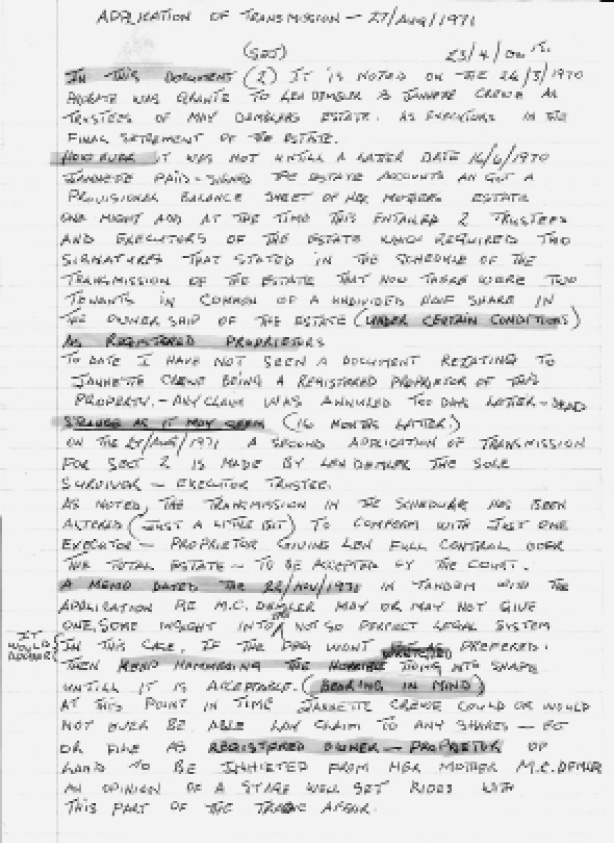 APPLICATION OF TRANSMISSION - 27/AUG/1971
(SET) 23/4/
IN THIS DOCUMENT (2) IT IS NOTED ON THE 26/3/1970
WAS GRANTE TO LEN DEMBLER & JANNETE CREWE AS
TRUSTEES OF MAY DEMBLERS ESTATE. AS EXECUTORS IN THE
FINAL SETTEMENT OF THE ESTATE.
HOWEVER IT WAS NOT UNTILL A LATER DATE 16/6/1970
JANNETTE PAID - SIGNED THE ESTATE ACCOUNTS AN GOT A
PROVISIONAL BALANCE SHEET OF HER MOTHERS ESTATE
ONE MIGHT ADD AT THE TIME THIS ENTAILED 2 TRUSTEES
AND EXECUTORS OF THE ESTATE WHICH REQUIRED TWO
SIGNATURES THAT STATED IN THE SCHEDULE OF THE
TRANSMISSION OF THE ESTATE THAT NOW THERE WERE TWO
TENANTS IN COMMON OF A UNDIVIDED HALF SHARE IN
THE OWNER SHIP OF THE ESTATE (UNDER CERTAIN CONDITIONS)
AS REGISTERED PROPRIETORS
TO DATE I HAVE NOT SEEN A DOCUMENT RELATING TO
JANNETTE CREWE BEING A REGISTERED PROPRIETOR OF THIS
PROPERTY. - ANY CLAIM WAS ANNULLED TOO DAYS LATTER - DEAD
STRANGE AS IT MAY SEEM (14 MONTHS LATTER)
ON THE 27/AUG/1971 A SECOND APPLICATION OF TRANSMISSION
FOR SECT 2 IS MADE BY LEN DEMLER THE SOLE
SURVIVOR - EXECUTOR TRUSTEE.
AS NOTED, THE TRANSMISSION IN THE SCHEDULAR HAS BEEN
ALTERED (JUST A LITTLE BIT) TO CONFORM WITH JUST ONE
EXECUTOR - PROPRIETOR GIVING LEN FULL CONTROL OVER
THE TOTAL ESTATE - TO BE ACCEPTED BY THE COURT.
A MEMO DATED THE 22/NOV/1971 IN TANDOM WITH THE
APPLICATION RE M.C. DEMLER MAY OR MAY NOT GIVE
ONE, SOME INSIGHT INTO NOT SO PERFECT LEGAL SYSTEM
IT WOULD APPEAR IN THIS CASE, IF THE PEG WONT AS PREFERED.
THEN KEEP HAMMERING THE HORRIBLE THING INTO SHAPE
UNTILL IT IS ACCEPTABLE. (BEARING IN MIND)
AT THIS POINT IN TIME JANNETTE CREWE COULD OR WOULD
NOT EVER BE ABLE LAY CLAIM TO ANY SHARES - ECT
OR FILE AS REGISTERED OWNER - PROPRIETOR OF
LAND TO BE INHIETED FROM HER MOTHER M.C. DEMLER
AN OPINION OF A STAGE WELL SET RIDES WITH
THIS PART OF THE TRAGIC AFFAIR.